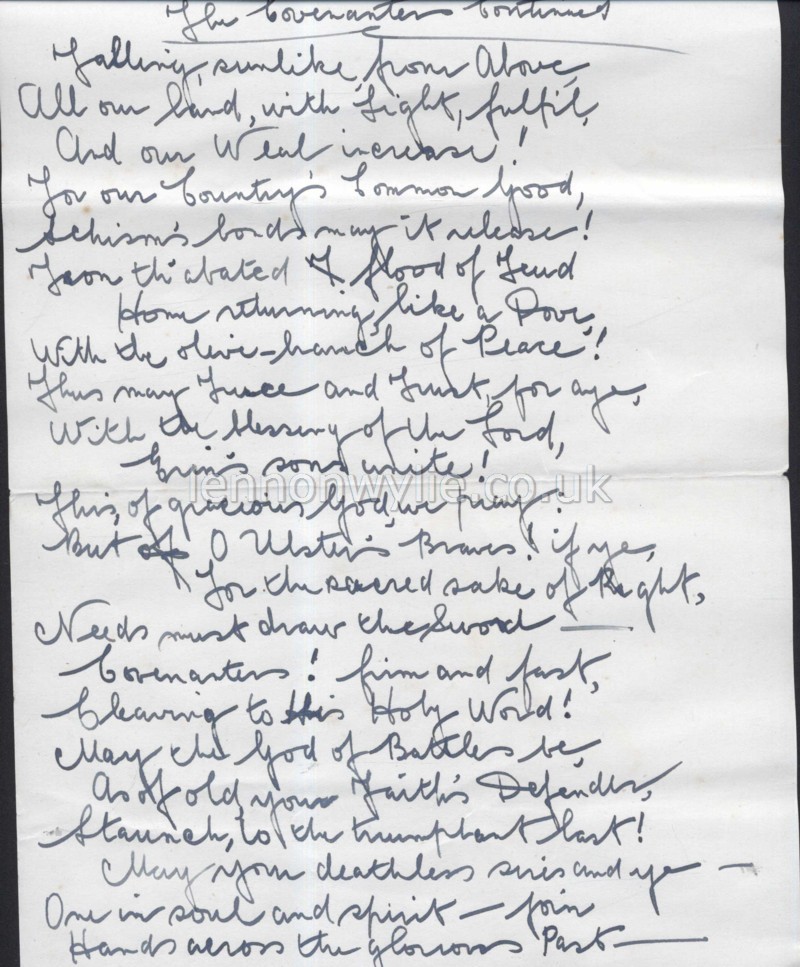 The Covenanters Continued
Falling, sunlike, from Above,
All our land, with Light, fulfil,
And our Weal increase!
For our Country's Common Good,
Schism's bonds may it release!
From th' abated flood of Feud
Home returning, like a Dove,
With the olive-branch of Peace!
Thus may Truce and Trust, for aye,
With the blessing of the Lord,
Erin's sons unite!
lennonwylie.co.uk
This, of gracious God, we pray:
But O Ulster's Braves! if ye,
For the sacred sake of Right,
Needs must draw the Sword —
Covenanters! firm and fast,
Cleaving to His Holy Word!
May the God of Battles be,
As of old your Faith's Defender,
Staunch, to the triumphant last!
May your deathless sires and ye —
One in soul and spirit — join
Hands across the glorious Past —